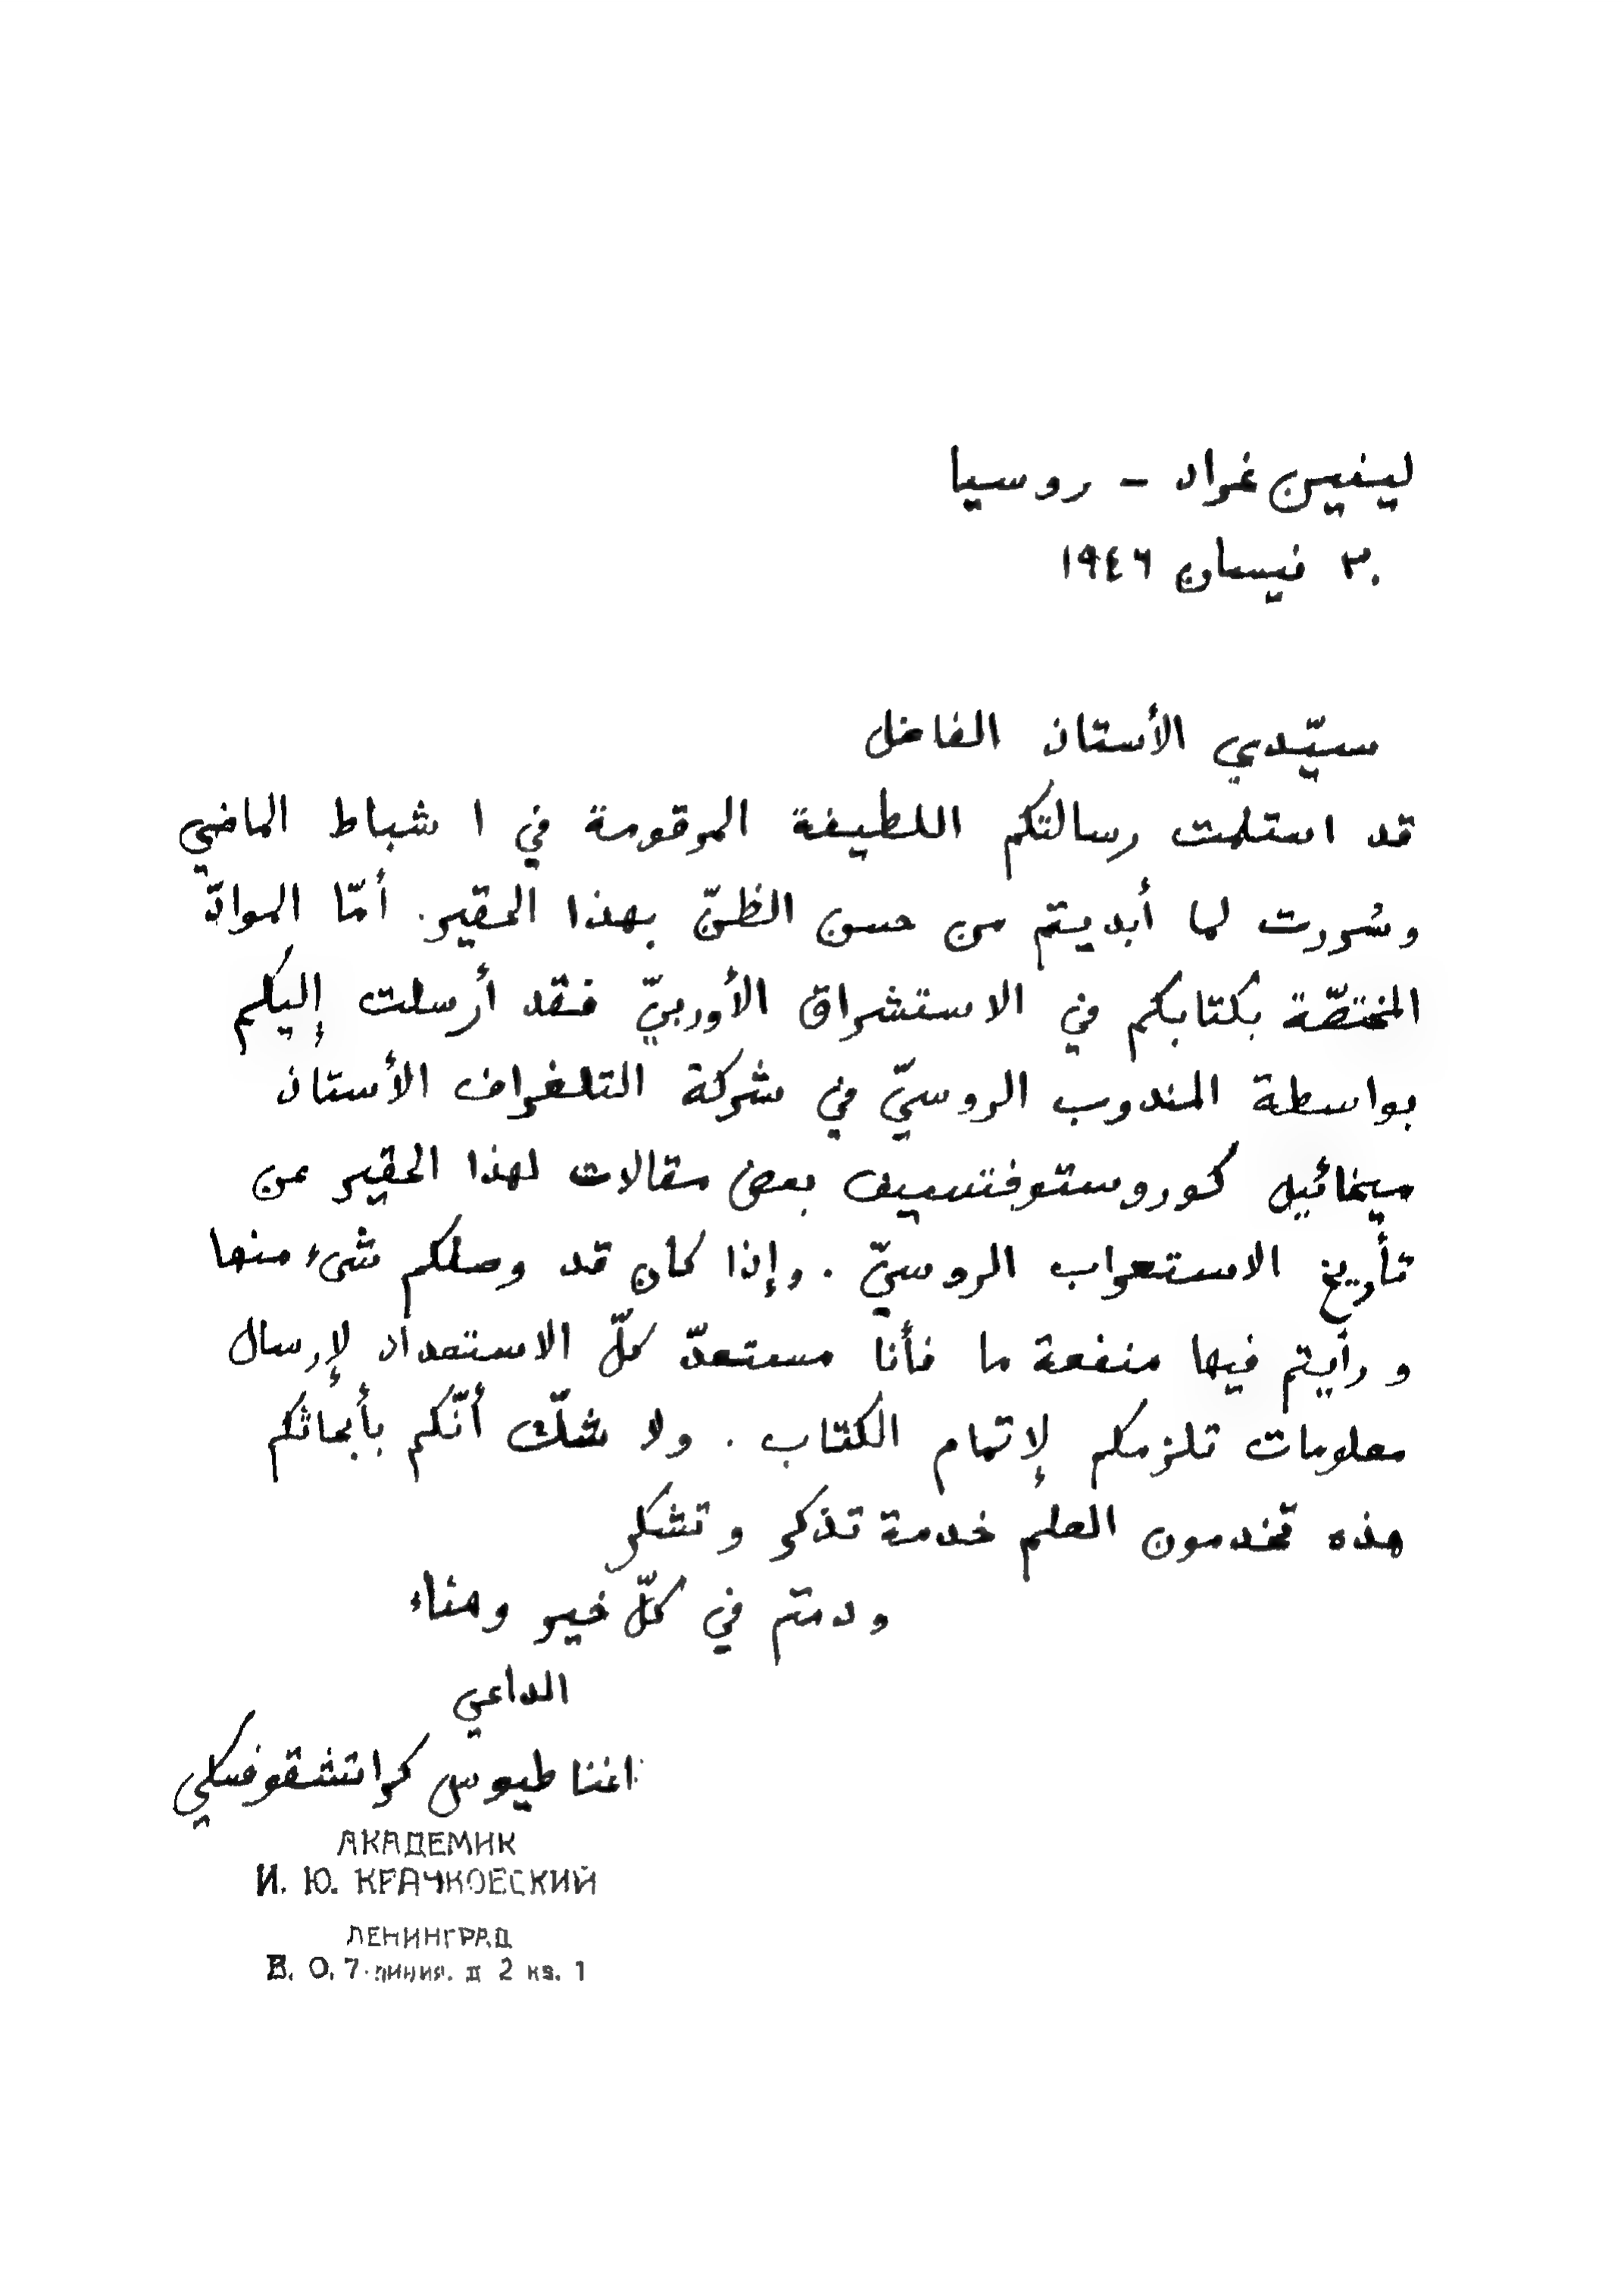 لينين غراد – روسيا
٣٠ نيسان ١٩٤٦
سيّدي الأستاذ الفاضل
قد استلمت رسالتكم اللطيفة المرقومة في ١ شباط الماضي
وسُررت لما أبديتم من حسن الظنّ بهذا الحقير. أمّا الموادّ
المختصّة بكتابكم في الاستشراق الأوربيّ فقد أرسلت إليكم
بواسطة المندوب الروسيّ في شركة التلغراف الأستاذ
ميخائيل كوروستوفتسيف بعض مقالات لهذا الحقير عن
تأريخ الاستعراب الروسيّ. وإذا كان قد وصلكم شىء منها
ورأيتم فيها منفعة ما فأنا مستعدّ كلّ الاستعداد لإرسال
معلومات تلزمكم لإتمام الكتاب. ولا شكّ أنّكم بأبحاثكم
هذه تخدمون العلم خدمة تذكر وتشكر
ودمتم في كلّ خير وهناء
الداعي
اغناطيوس كراتشقوفسكي
АКАДЕМИК
И. Ю. КРАЧКОВСКИЙ
ЛЕНИНГРАД
В. О. 7 линия. д 2 кв. 1